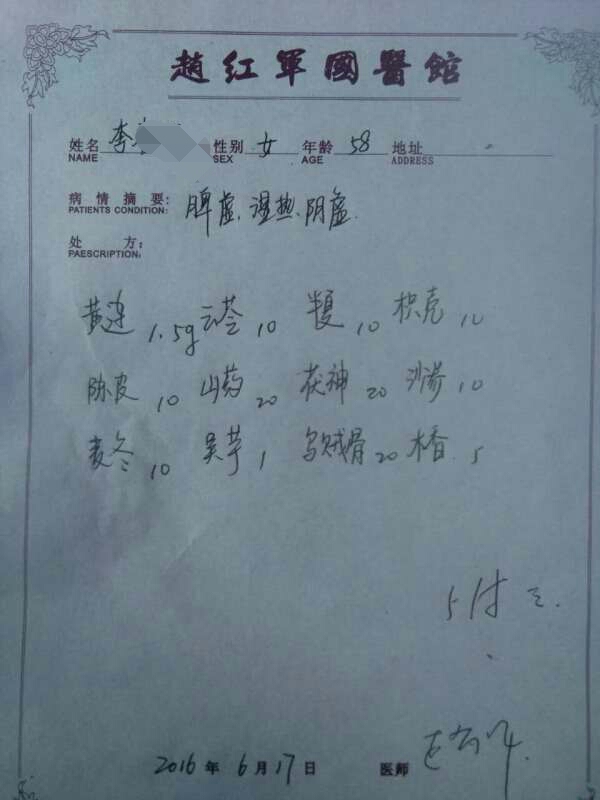 趙红軍國醫館
姓名 李 性别 女 年龄 58 地址
NAME SEX AGE ADDRESS
病情摘要: 脾虚、湿热、阴虚
PATIENTS CONDITION:
处方:
PAESCRIPTION:
黄连 1.5g 云苓 10 半夏 10 枳壳 10
陈皮 10 山药 20 茯神 20 沙参 10
麦冬 10 吴芋 1 乌贼骨 20 木香 5
5付
2016年6月17日 医师